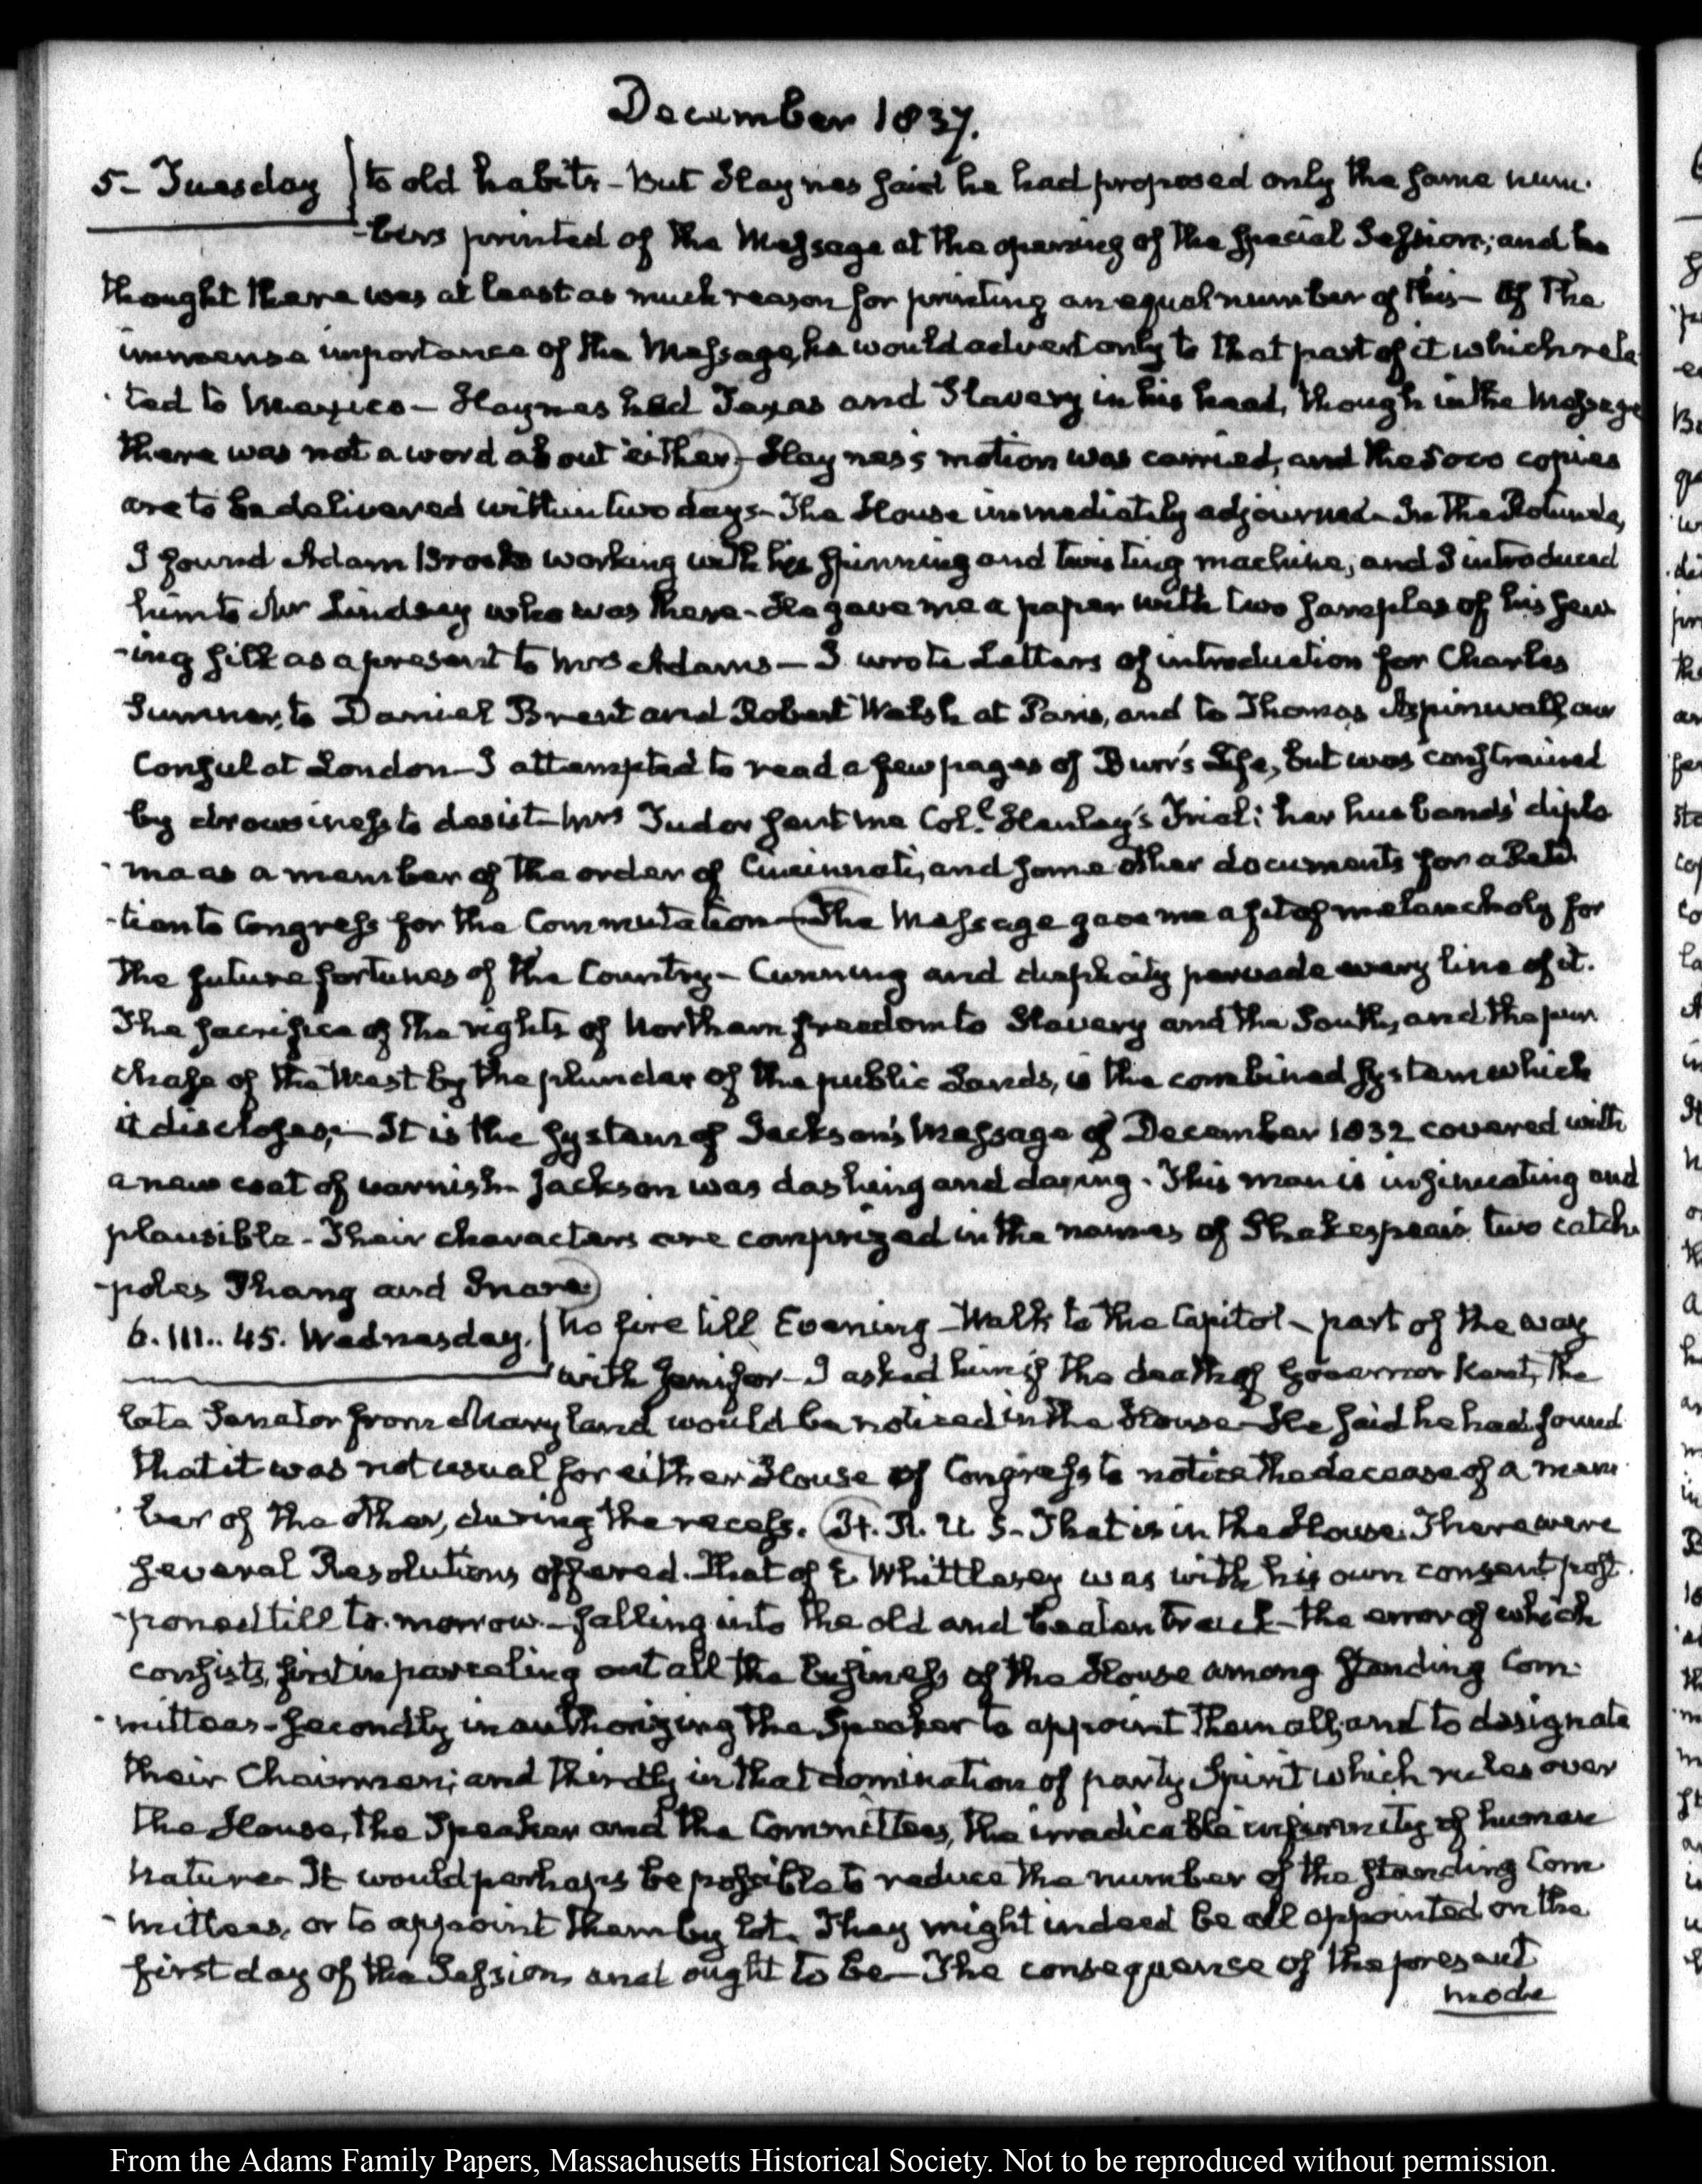 December 1837.
5- Tuesday } to old habits - But Haynes said he had proposed only the same num-
-bers printed of the Message at the opening of the special Session; and he
thought there was at least as much reason for printing an equal number of this - Of the
immense importance of the Message, he would advert only to that part of it which rela
ted to Mexico - Haynes had Texas and Slavery in his head, though in the Message
there was not a word about either) - Haynes's motion was carried, and the 5000 copies
are to be delivered within two days - The House immediately adjourned - In the Rotunda,
I found Adam Brooks working with his spinning and twisting machine, and I introduced
him to Mr Lindsay who was there - He gave me a paper with two samples of his sew
-ing silk as a present to Mrs Adams - I wrote Letters of introduction for Charles
Sumner, to Daniel Brent and Robert Walsh at Paris, and to Thomas Aspinwall, our
Consul at London - I attempted to read a few pages of Burr's Life, but was constrained
by drowsiness to desist - Mrs Tudor sent me Col.l Henley's Trial: her husband's diplo
ma as a member of the order of Cincinnati, and some other documents for a Peti
-tion to Congress for the Commutation - (The Message gave me a fit of melancholy for
the future fortunes of the Country - Cunning and duplicity pervade every line of it.
The sacrifice of the rights of Northern freedom to Slavery and the South, and the pur
chase of the West by the plunder of the public Lands, is the combined system which
it discloses; - It is the system of Jackson's Message of December 1832 covered with
a new coat of varnish - Jackson was dashing and daring. This man is insinuating and
plausible - Their characters are comprized in the names of Shakespear's two catch
-poles Phang and Snare)
6. III.. 45. Wednesday. } No fire till Evening - Walk to the Capitol - part of the way
with Jenifer - I asked him if the death of Governor Kent, the
late Senator from Maryland would be noticed in the House - He said he had found
that it was not usual for either House of Congress to notice the decease of a mem-
ber of the other, during the recess. (H. R. U S - That is in the House. There were
several Resolutions offered. That of E. Whittlesey was with his own consent post-
-poned till to-morrow - falling into the old and beaten track - the error of which
consists, first in parceling out all the business of the House among standing Com-
-mittees - secondly in authorizing the Speaker to appoint them all, and to designate
their Chairmen; and thirdly in that domination of party Spirit which rules over
the House, the Speaker and the Committees, the irradicable infirmity of human
nature - It would perhaps be possible to reduce the number of the standing Com
-mittees, or to appoint them by lot. They might indeed be all appointed on the
first day of the Session, and ought to be - The consequence of the present
mode
From the Adams Family Papers, Massachusetts Historical Society. Not to be reproduced without permission.